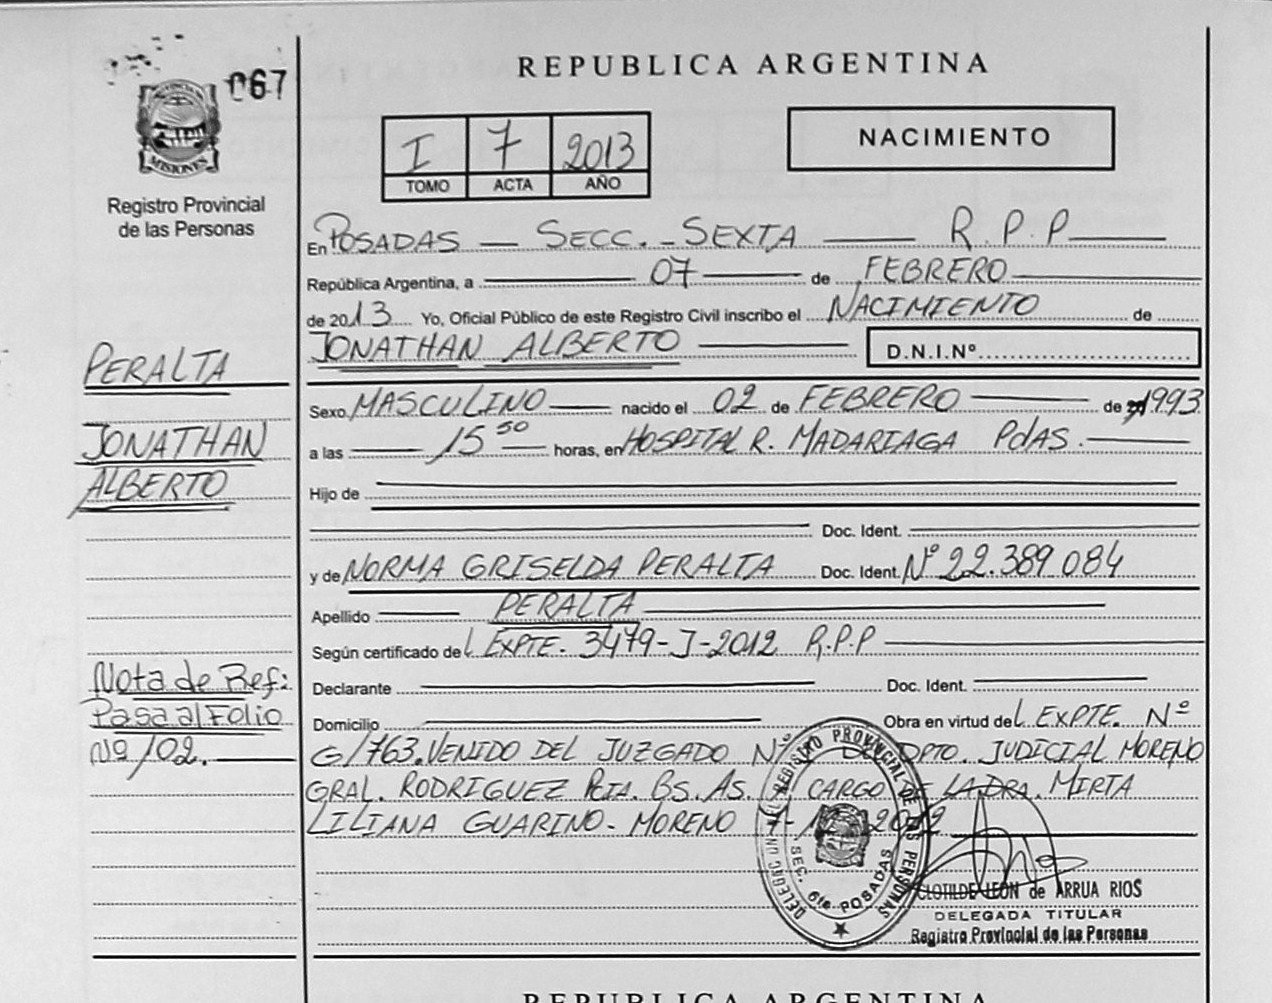 067
REPUBLICA ARGENTINA
MISIONES
Registro Provincial
de las Personas
I 7 2013
TOMO ACTA AÑO
NACIMIENTO
En POSADAS — SECC. - SEXTA — R.P.P —
República Argentina, a — 07 — de FEBRERO —
de 2013 Yo, Oficial Público de este Registro Civil inscribo el NACIMIENTO de
JONATHAN ALBERTO — D.N.I.Nº
PERALTA
JONATHAN
ALBERTO
Sexo MASCULINO — nacido el 02 de FEBRERO — de 1993
a las — 15 50 — horas, en HOSPITAL R. MADARIAGA PdAS. —
Hijo de
Doc. Ident.
y de NORMA GRISELDA PERALTA Doc. Ident. Nº 22.389.084
Apellido — PERALTA —
Según certificado del EXPTE. 3479-J-2012 R.P.P —
Declarante — Doc. Ident. —
Domicilio — Obra en virtud del EXPTE. Nº
G/763. VENIDO DEL JUZGADO Nº DPTO. JUDICIAL MORENO
GRAL. RODRIGUEZ PCIA. BS. AS. A CARGO DE LA DRA. MIRTA
LILIANA GUARINO - MORENO 7- 2012
Nota de Ref:
Pasa al Folio
Nº 102. —
REGISTRO PROVINCIAL DE LAS PERSONAS
SEC. 6ta POSADAS
CLOTILDE LEON de ARRUA RIOS
DELEGADA TITULAR
Registro Provincial de las Personas
REPUBLICA ARGENTINA